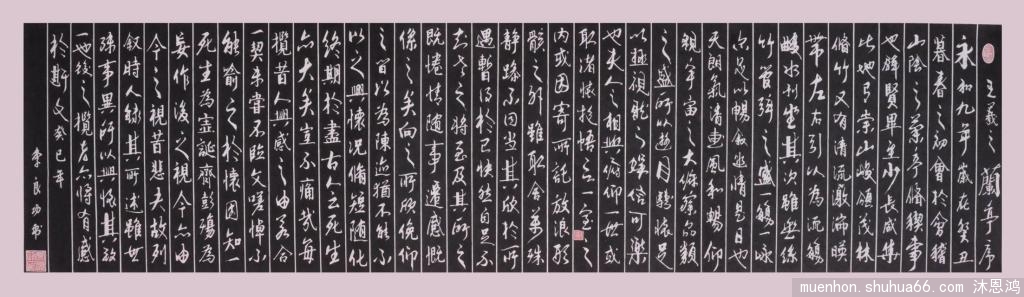 王羲之 蘭亭序
永和九年歲在癸丑
暮春之初會於會稽
山陰之蘭亭脩稧事
也群賢畢至少長咸集
此地有崇山峻領茂林
脩竹又有清流激湍暎
帶左右引以為流觴
曲水列坐其次雖無絲
竹管弦之盛一觴一詠
亦足以暢敘幽情是日也
天朗氣清惠風和暢仰
觀宇宙之大俯察品類
之盛所以遊目騁懷足
以極視聽之娛信可樂
也夫人之相與俯仰一世或
取諸懷抱悟言一室之
內或因寄所託放浪形
骸之外雖取舍萬殊
靜躁不同當其欣於所
遇暫得於己快然自足不
知老之將至及其所之
既惓情隨事遷感慨
係之矣向之所欣俛仰
之間以為陳迹猶不能不
以之興懷況脩短隨化
終期於盡古人云死生
亦大矣豈不痛哉每
攬昔人興感之由若合
一契未嘗不臨文嗟悼不
能喻之於懷固知一
死生為虛誕齊彭殤為
妄作後之視今亦由
今之視昔悲夫故列
敘時人錄其所述雖世
殊事異所以興懷其致
一也後之攬者亦將有感
於斯文 癸巳年
李良功書
muenhon.shuhua66.com 沐恩鸿